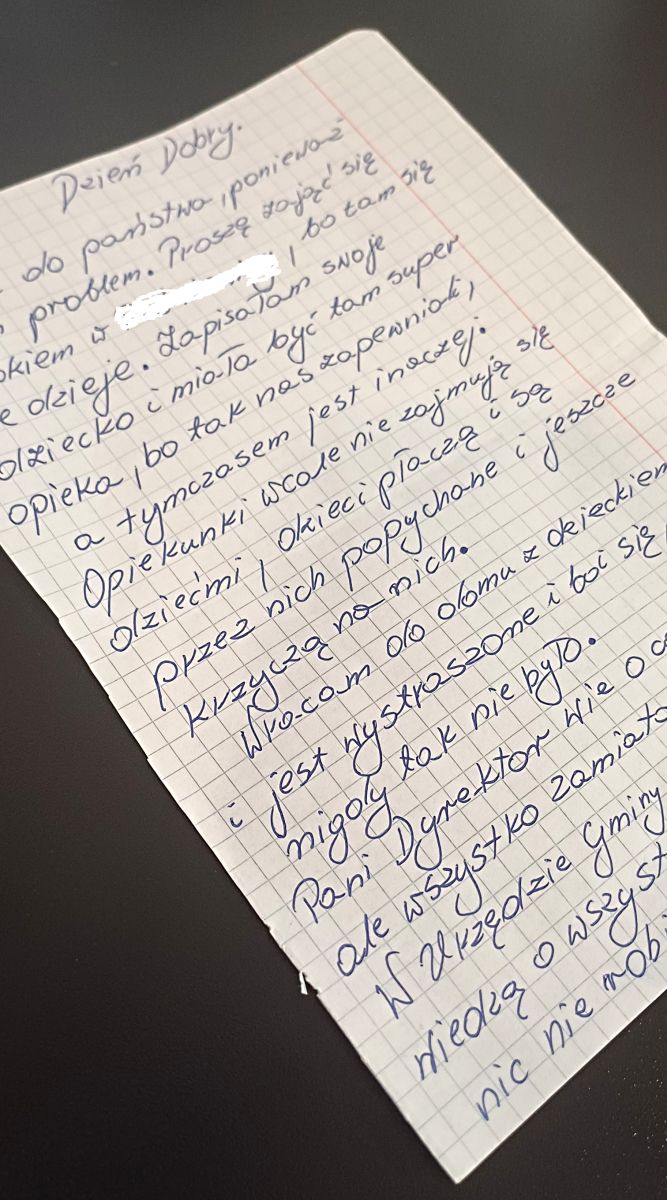 Dzień Dobry.
do państwa, ponieważ
problem. Proszę zająć się
w , bo tam się
dzieje. Zapisałam swoje
dziecko i miała być tam super
opieka, bo tak nas zapewniali,
a tymczasem jest inaczej.
Opiekunki wcale nie zajmują się
dziećmi, dzieci płaczą i są
przez nich popychane i jeszcze
krzyczą na nich.
Wracam do domu z dzieckiem
i jest wystraszone i boi się,
nigdy tak nie było.
Pani Dyrektor wie o
ale wszystko
W Urzędzie Gminy
wiedzą o
nic nie